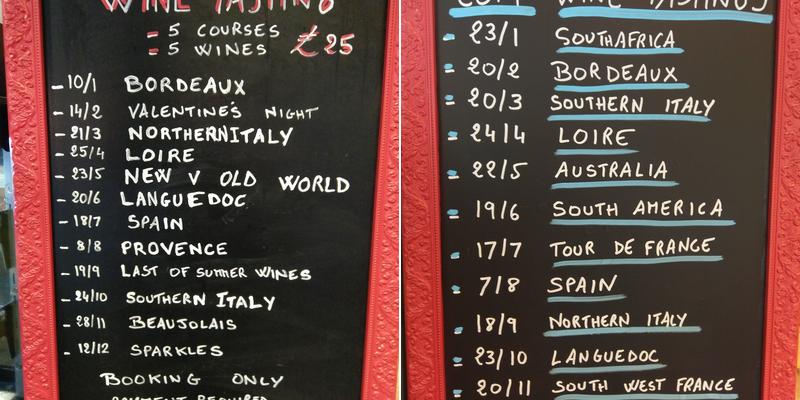 WINE TASTING
= 5 COURSES
= 5 WINES £25
- 10/1 BORDEAUX
- 14/2 VALENTINE'S NIGHT
- 21/3 NORTHERN ITALY
- 25/4 LOIRE
- 23/5 NEW V OLD WORLD
- 20/6 LANGUEDOC
- 18/7 SPAIN
- 8/8 PROVENCE
- 19/9 LAST OF SUMMER WINES
- 24/10 SOUTHERN ITALY
- 28/11 BEAUJOLAIS
- 12/12 SPARKLES
BOOKING ONLY
PAYMENT REQUIRED
WINE TASTINGS
= 23/1 SOUTHAFRICA
= 20/2 BORDEAUX
= 20/3 SOUTHERN ITALY
= 24/4 LOIRE
= 22/5 AUSTRALIA
= 19/6 SOUTH AMERICA
= 17/7 TOUR DE FRANCE
= 7/8 SPAIN
= 18/9 NORTHERN ITALY
= 23/10 LANGUEDOC
= 20/11 SOUTH WEST FRANCE